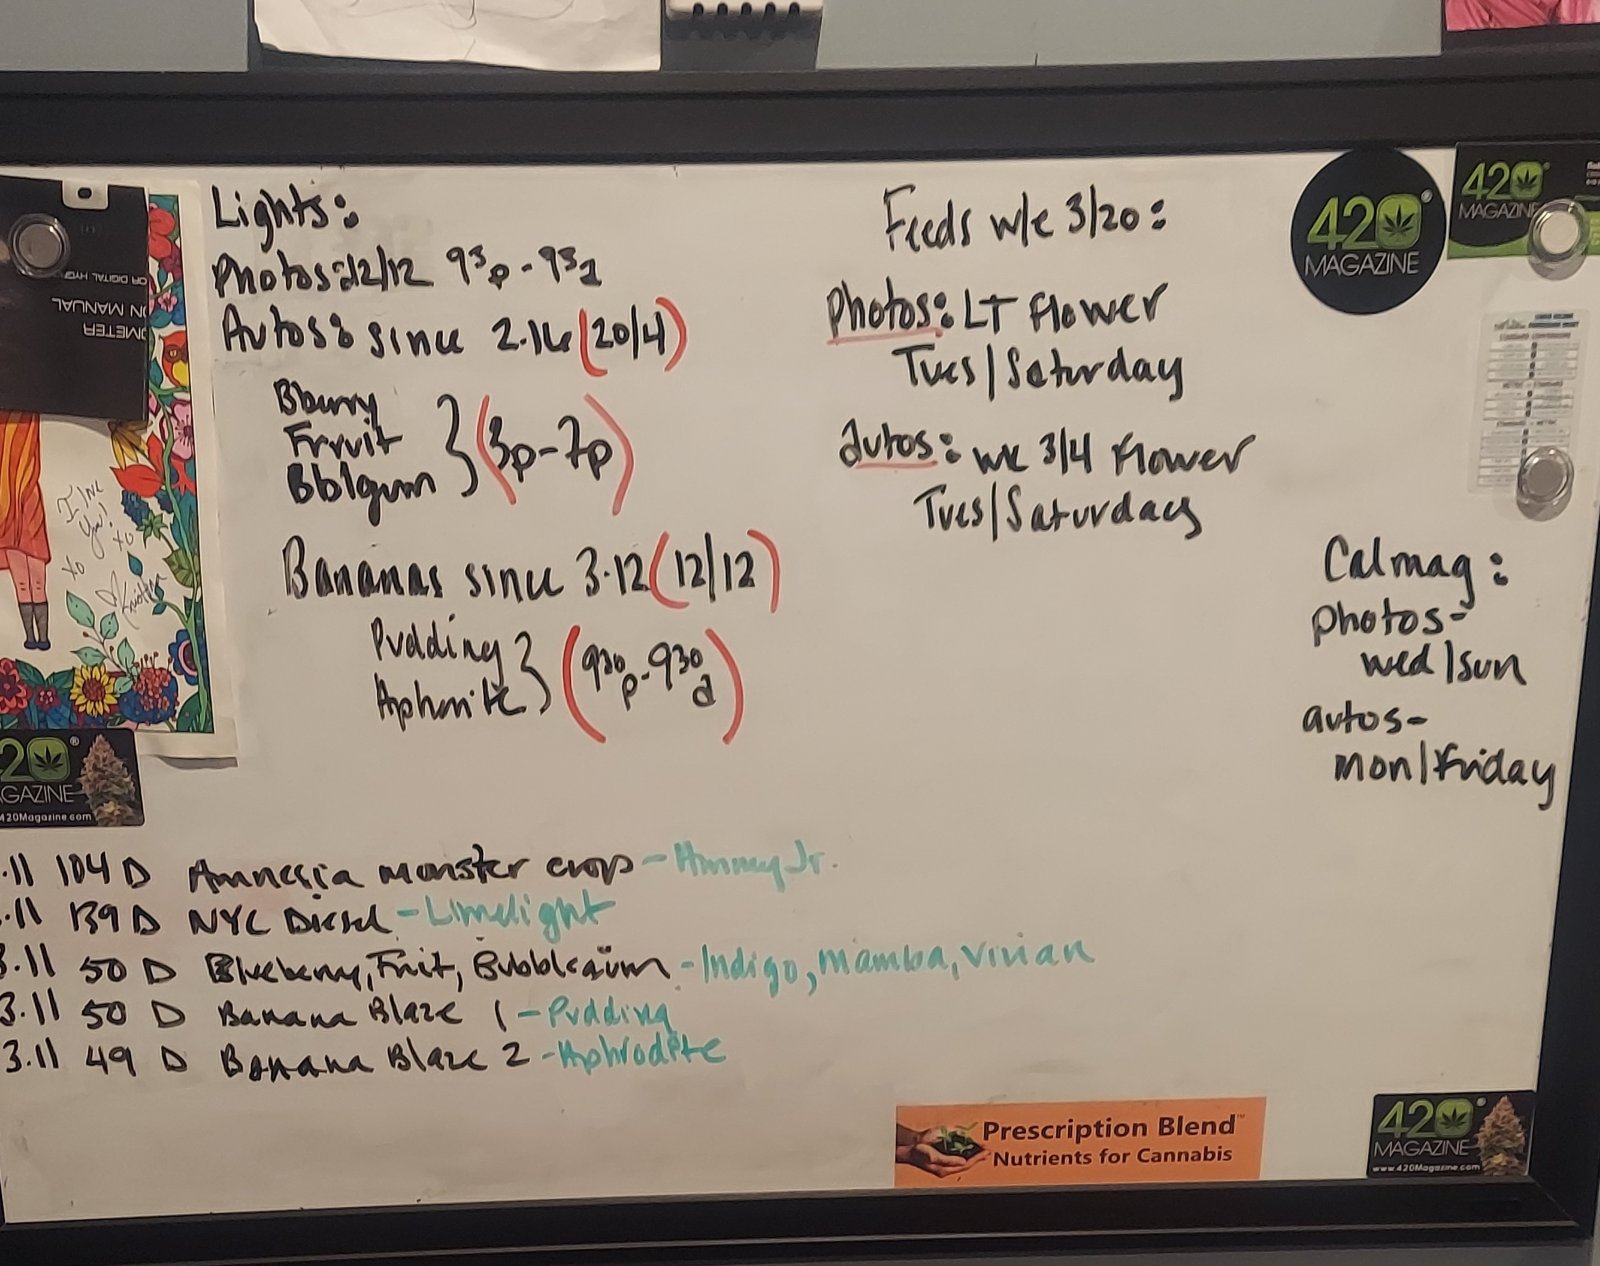 Lights:
Photos: 12/12 9³p - 9³a
Autos: since 2.16 (20/4)
Bburry
Fruit
Bblgum
(3p-7p)
Bananas since 3.12 (12/12)
Pudding
(9³⁰p-9³⁰a)
Feeds w/e 3/20:
Photos: LT Flower
Tues/Saturday
autos: wk 3/4 Flower
Tues/Saturdays
Calmag:
photos-
wed/sun
autos-
mon/Friday
.11 104 D Amnesia monster crop - Jr.
.11 139 D NYC Diesel - Limelight
3.11 50 D Blueberry, Fruit, Bubblegum - Indigo, Mamba, Vivian
3.11 50 D Banana Blaze 1 - Pudding
3.11 49 D Banana Blaze 2 - Aphrodite
420®
MAGAZINE
420®
MAGAZINE
OR DIGITAL
ON MANUAL
OMETER
I love
you!
xo
xo
Kristen
20®
GAZINE
420Magazine.com
Prescription Blend™
Nutrients for Cannabis
420®
MAGAZINE
www.420Magazine.com